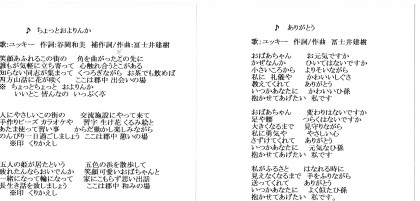 ♪ ちょっとおよりんか
歌:ユッキー 作詞:谷岡和美 補作詞/作曲:冨士井建樹
笑顔あふれるこの街の 角を曲がったこの先に
誰もが気軽に立ち寄って 心触れ合うとこがある
知らない同志が集まって くつろぎながら お茶でも飲めば
四方山話に花が咲く ここは郡中 出会いの場
※ ちょっとちょっと およりんか
いいとこ 皆んなの いっぷく亭
人にやさしいこの街の 交流施設にやって来て
手作りビーズ カラオケや
あたま使って習い事 からだ動かし楽しみながら
のんびり一日過ごしましょう ここは郡中 憩いの場
※印 くりかえし
五人の姫が居たという 五色の浜を散歩して
疲れたんならおいでんか 笑顔可愛いおばちゃんと
一緒になって輪になって 家にこもらず思い出話
長生き話を致しましょう ここは郡中 和みの場
※印 くりかえし
♪ ありがとう
歌:ユッキー 作詞/作曲 冨士井建樹
おばあちゃん お元気ですか
かぜなんか ひいてはないですか
小さいころから よりそいながら
私に 礼儀や かわいいしぐさ
教えてくれて ありがとう
いつかあなたに かわいいひ孫
抱かせてあげたい 私です
おばあちゃん 変わりはないですか
足や腰 つらくはないですか
大きくなるまで 見守りながら
私に勇気や やさしい心
さずけてくれて ありがとう
いつかあなたに 元気なひ孫
抱かせてあげたい 私です
私がふるさと はなれる時に
見えなくなるまで 手をふりながら
送ってくれて ありがとう
いつかあなたに よく似たひ孫
抱かせてあげたい 私です。